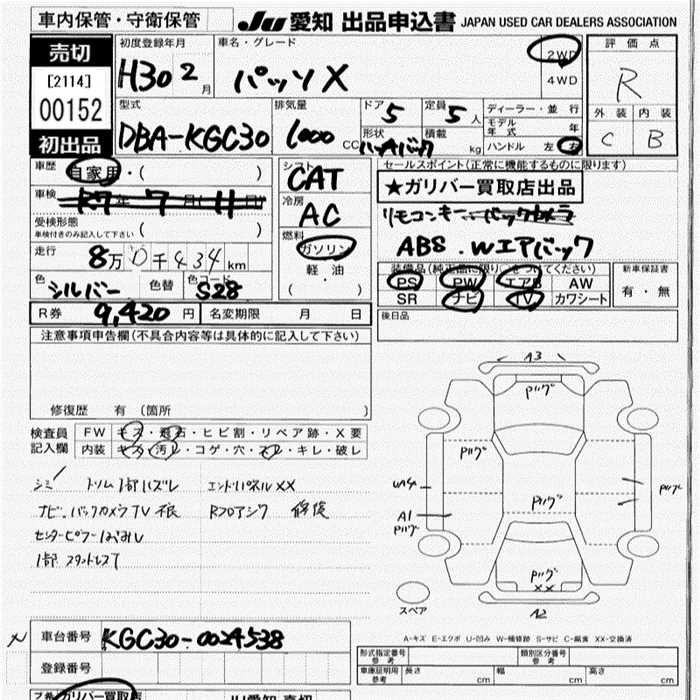 車内保管・守衛保管
JU 愛知 出品申込書 JAPAN USED CAR DEALERS ASSOCIATION
売切
[2114]
00152
初出品
初度登録年月
H30 2月
車名・グレード
パッソX
2WD
4WD
評価点
R
外装 内装
C B
型式
DBA-KGC30
排気量
1000 CC
ドア
5
定員
5人
形状
ハッチバック
積載
kg
ディーラー・並行
モデル年式 年
ハンドル 左 右
車歴
自家用・( )
車検
R7年7月(11日)
受検形態
車検付きのみ記入して下さい ( )
走行
8万0千434km
色
シルバー
色替
色コード
S28
シフト
CAT
冷房
AC
燃料
ガソリン
軽油
( ・ )
セールスポイント(正常に機能するものに限ります)
★ガリバー買取店出品
リモコンキー バックカメラ
ABS . Wエアバック
装備品(純正品に限り○をつけてください)
PS PW エアB AW
SR ナビ TV カワシート
新車保証書
有・無
後日品
R券 9,420円
名変期限 月 日
注意事項申告欄(不具合内容等は具体的に記入して下さい)
修復歴 有 (箇所 )
検査員記入欄
FW キズ・飛石・ヒビ割・リペア跡・X要
内装 キズ・汚レ・コゲ・穴・スレ・キレ・破レ
シミ トリム1部ハズレ エンドパネルXX
ナビ、バックカメラTV 不良 Rフロアシワ 修復
1部 スタットレスT
A3
Pルグ
Pルグ
Pルグ
Pルグ
A1
Pルグ
Pルグ
XX
A2
スペア
A-キズ E-エクボ U-凹み W-補修跡 S-サビ C-腐食 XX-交換済
車台番号 KGC30-0024538
登録番号
形式指定番号 参考
類別区分番号 参考
車庫証明用 参考 長さ cm 幅 cm 高さ cm
ガリバー買取店
JU愛知 売切